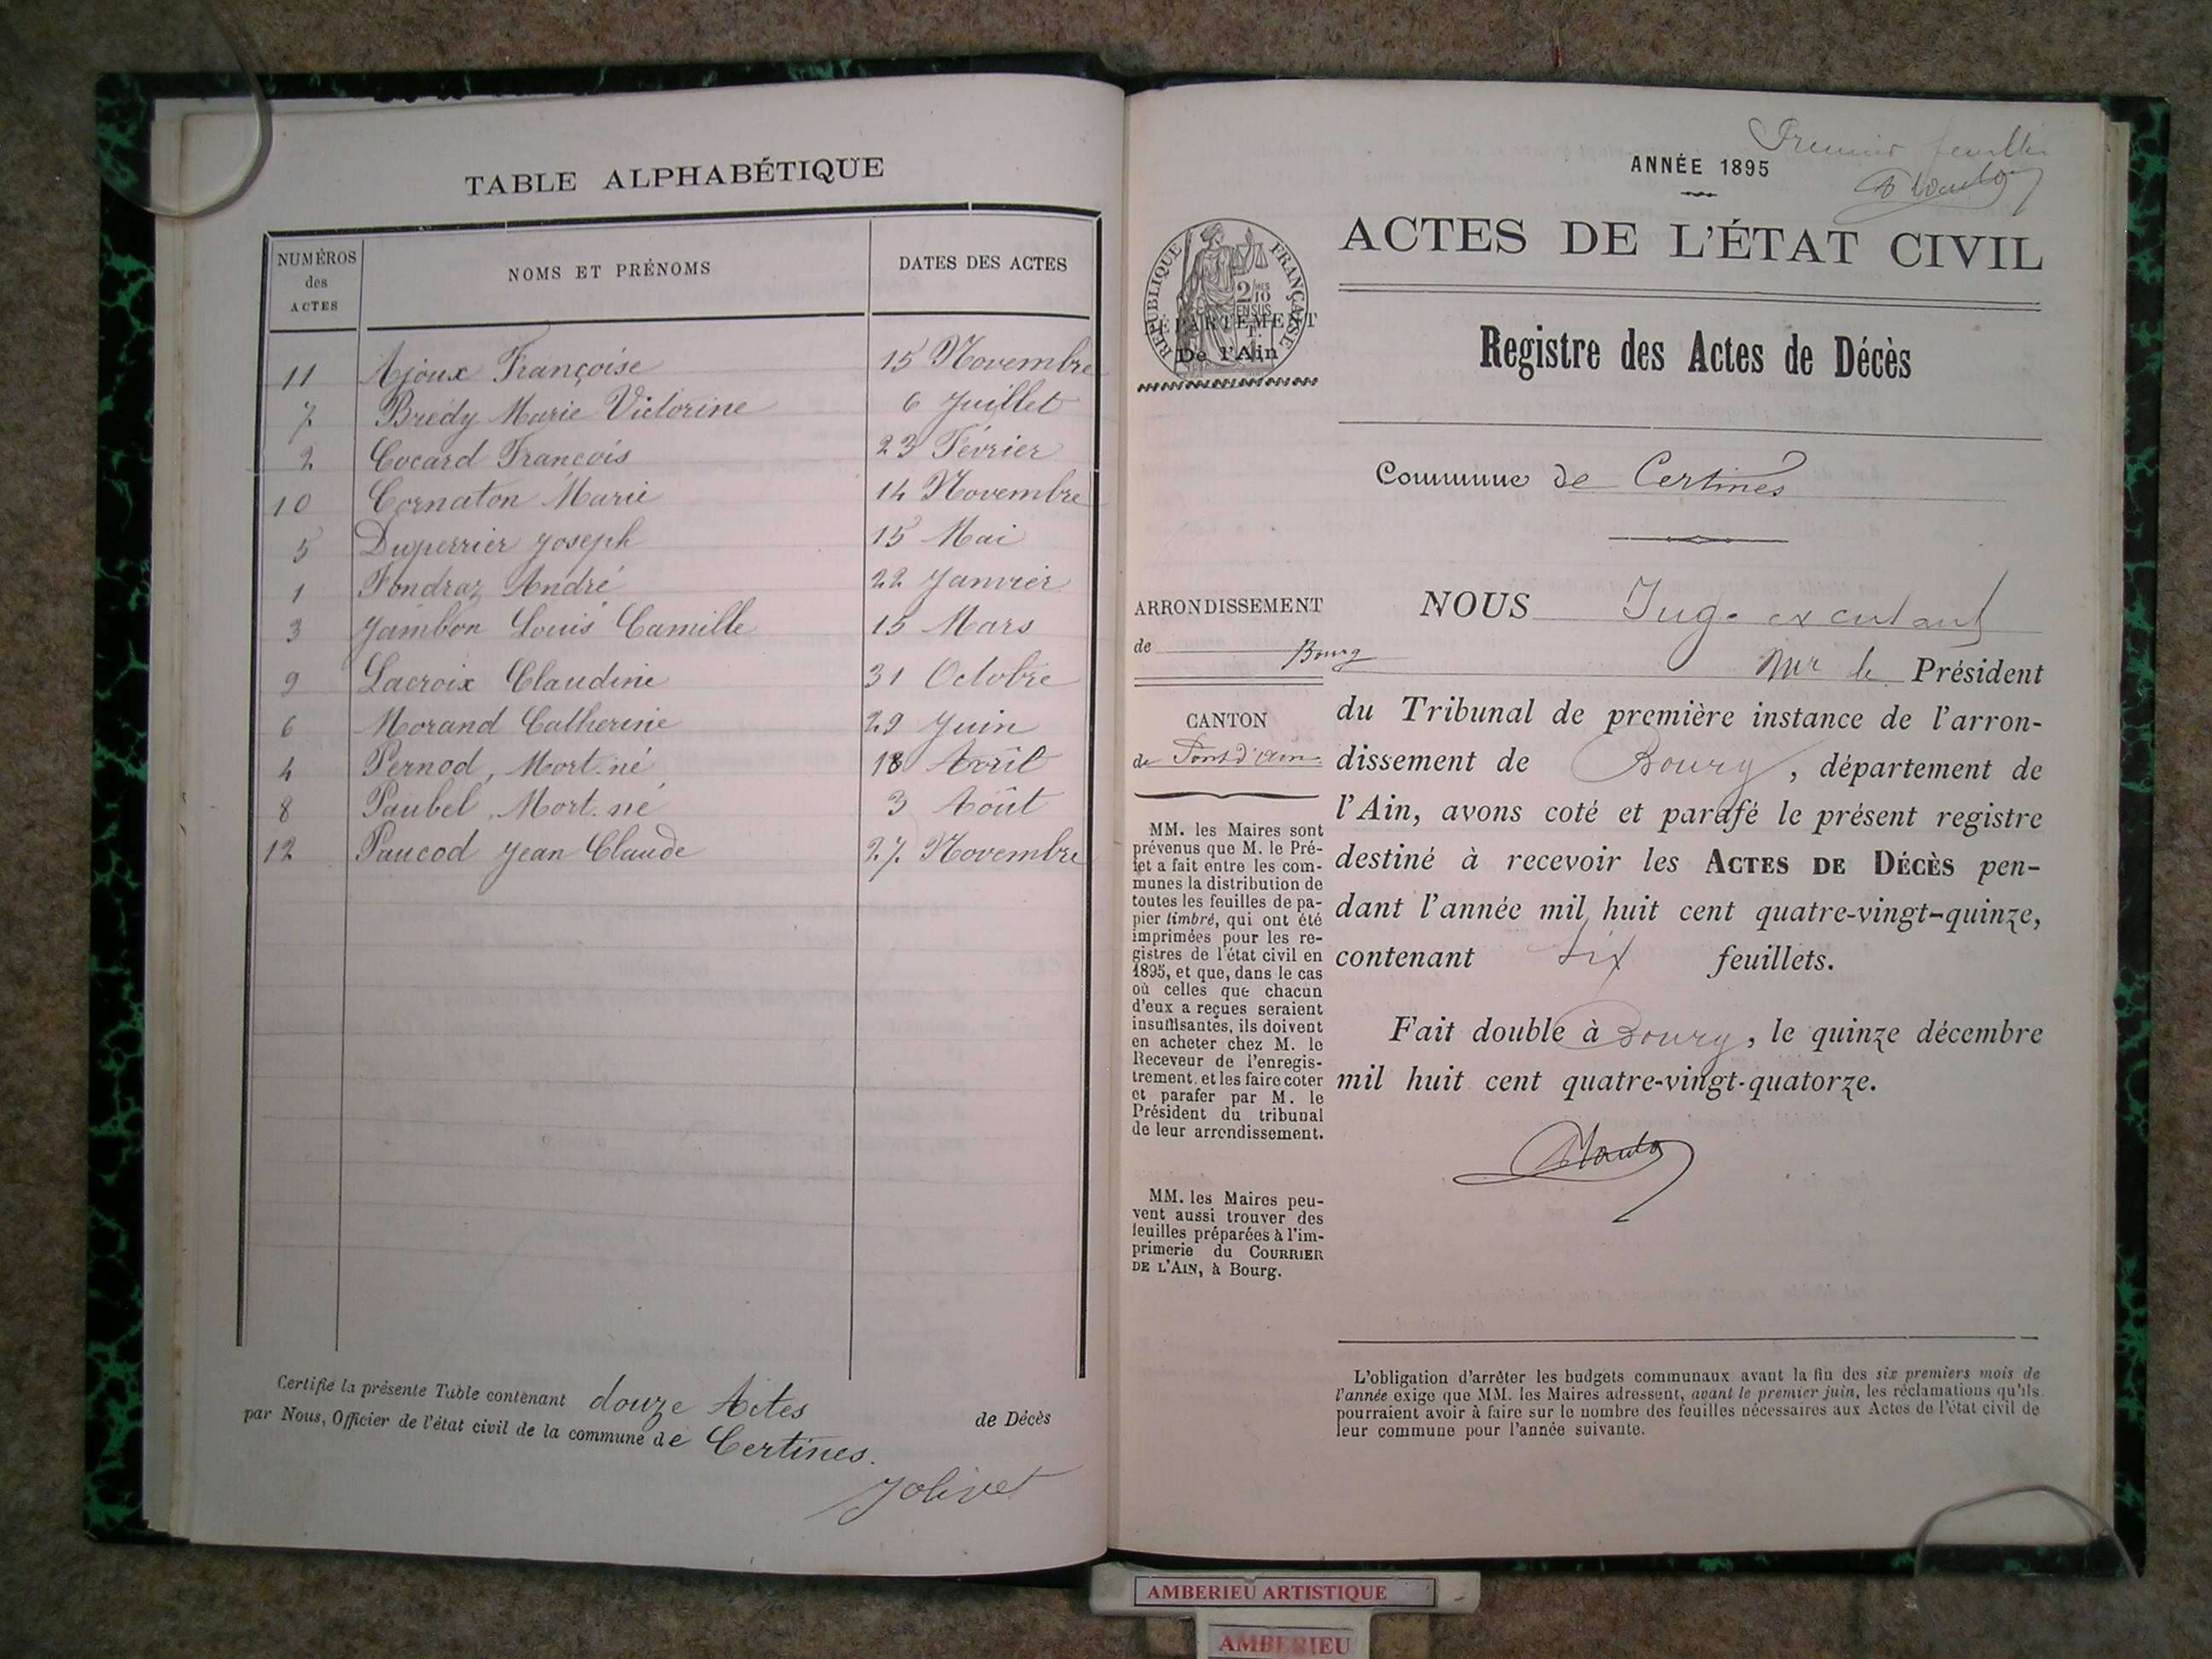 TABLE ALPHABÉTIQUE
NUMÉROS
des
ACTES
NOMS ET PRÉNOMS
DATES DES ACTES
11 Ajoux Françoise 15 Novembre
7 Brédy Marie Victorine 6 Juillet
2 Cocard François 23 Février
10 Cornaton Marie 14 Novembre
5 Duperrier Joseph 15 Mai
1 Fondraz André 22 Janvier
3 Jambon Louis Camille 15 Mars
9 Lacroix Claudine 31 Octobre
6 Morand Catherine 29 Juin
4 Pernod, Mort-né 18 Avril
8 Paubel, Mort-né 3 Août
12 Paucod Jean Claude 27 Novembre
Certifié la présente Table contenant douze Actes de Décès
par Nous, Officier de l'état civil de la commune de Certines.
Jolivet
Premier feuillet
ANNÉE 1895
ACTES DE L'ÉTAT CIVIL
RÉPUBLIQUE FRANÇAISE
2/10
EN SUS
DÉPARTEMENT
De l'Ain
Registre des Actes de Décès
Commune de Certines
ARRONDISSEMENT
de Bourg
CANTON
de Pont d'Ain
MM. les Maires sont
prévenus que M. le Pré-
fet a fait entre les com-
munes la distribution de
toutes les feuilles de pa-
pier timbré, qui ont été
imprimées pour les re-
gistres de l'état civil en
1895, et que, dans le cas
où celles que chacun
d'eux a reçues seraient
insuffisantes, ils doivent
en acheter chez M. le
Receveur de l'enregis-
trement, et les faire coter
et parafer par M. le
Président du tribunal
de leur arrondissement.
MM. les Maires peu-
vent aussi trouver des
feuilles préparées à l'im-
primerie du COURRIER
DE L'AIN, à Bourg.
NOUS Juge
Mr le Président
du Tribunal de première instance de l'arron-
dissement de Bourg, département de
l'Ain, avons coté et parafé le présent registre
destiné à recevoir les ACTES DE DÉCÈS pen-
dant l'année mil huit cent quatre-vingt-quinze,
contenant six feuillets.
Fait double à Bourg, le quinze décembre
mil huit cent quatre-vingt-quatorze.
L'obligation d'arrêter les budgets communaux avant la fin des six premiers mois de
l'année exige que MM. les Maires adressent, avant le premier juin, les réclamations qu'ils
pourraient avoir à faire sur le nombre des feuilles nécessaires aux Actes de l'état civil de
leur commune pour l'année suivante.
AMBERIEU ARTISTIQUE
AMBERIEU